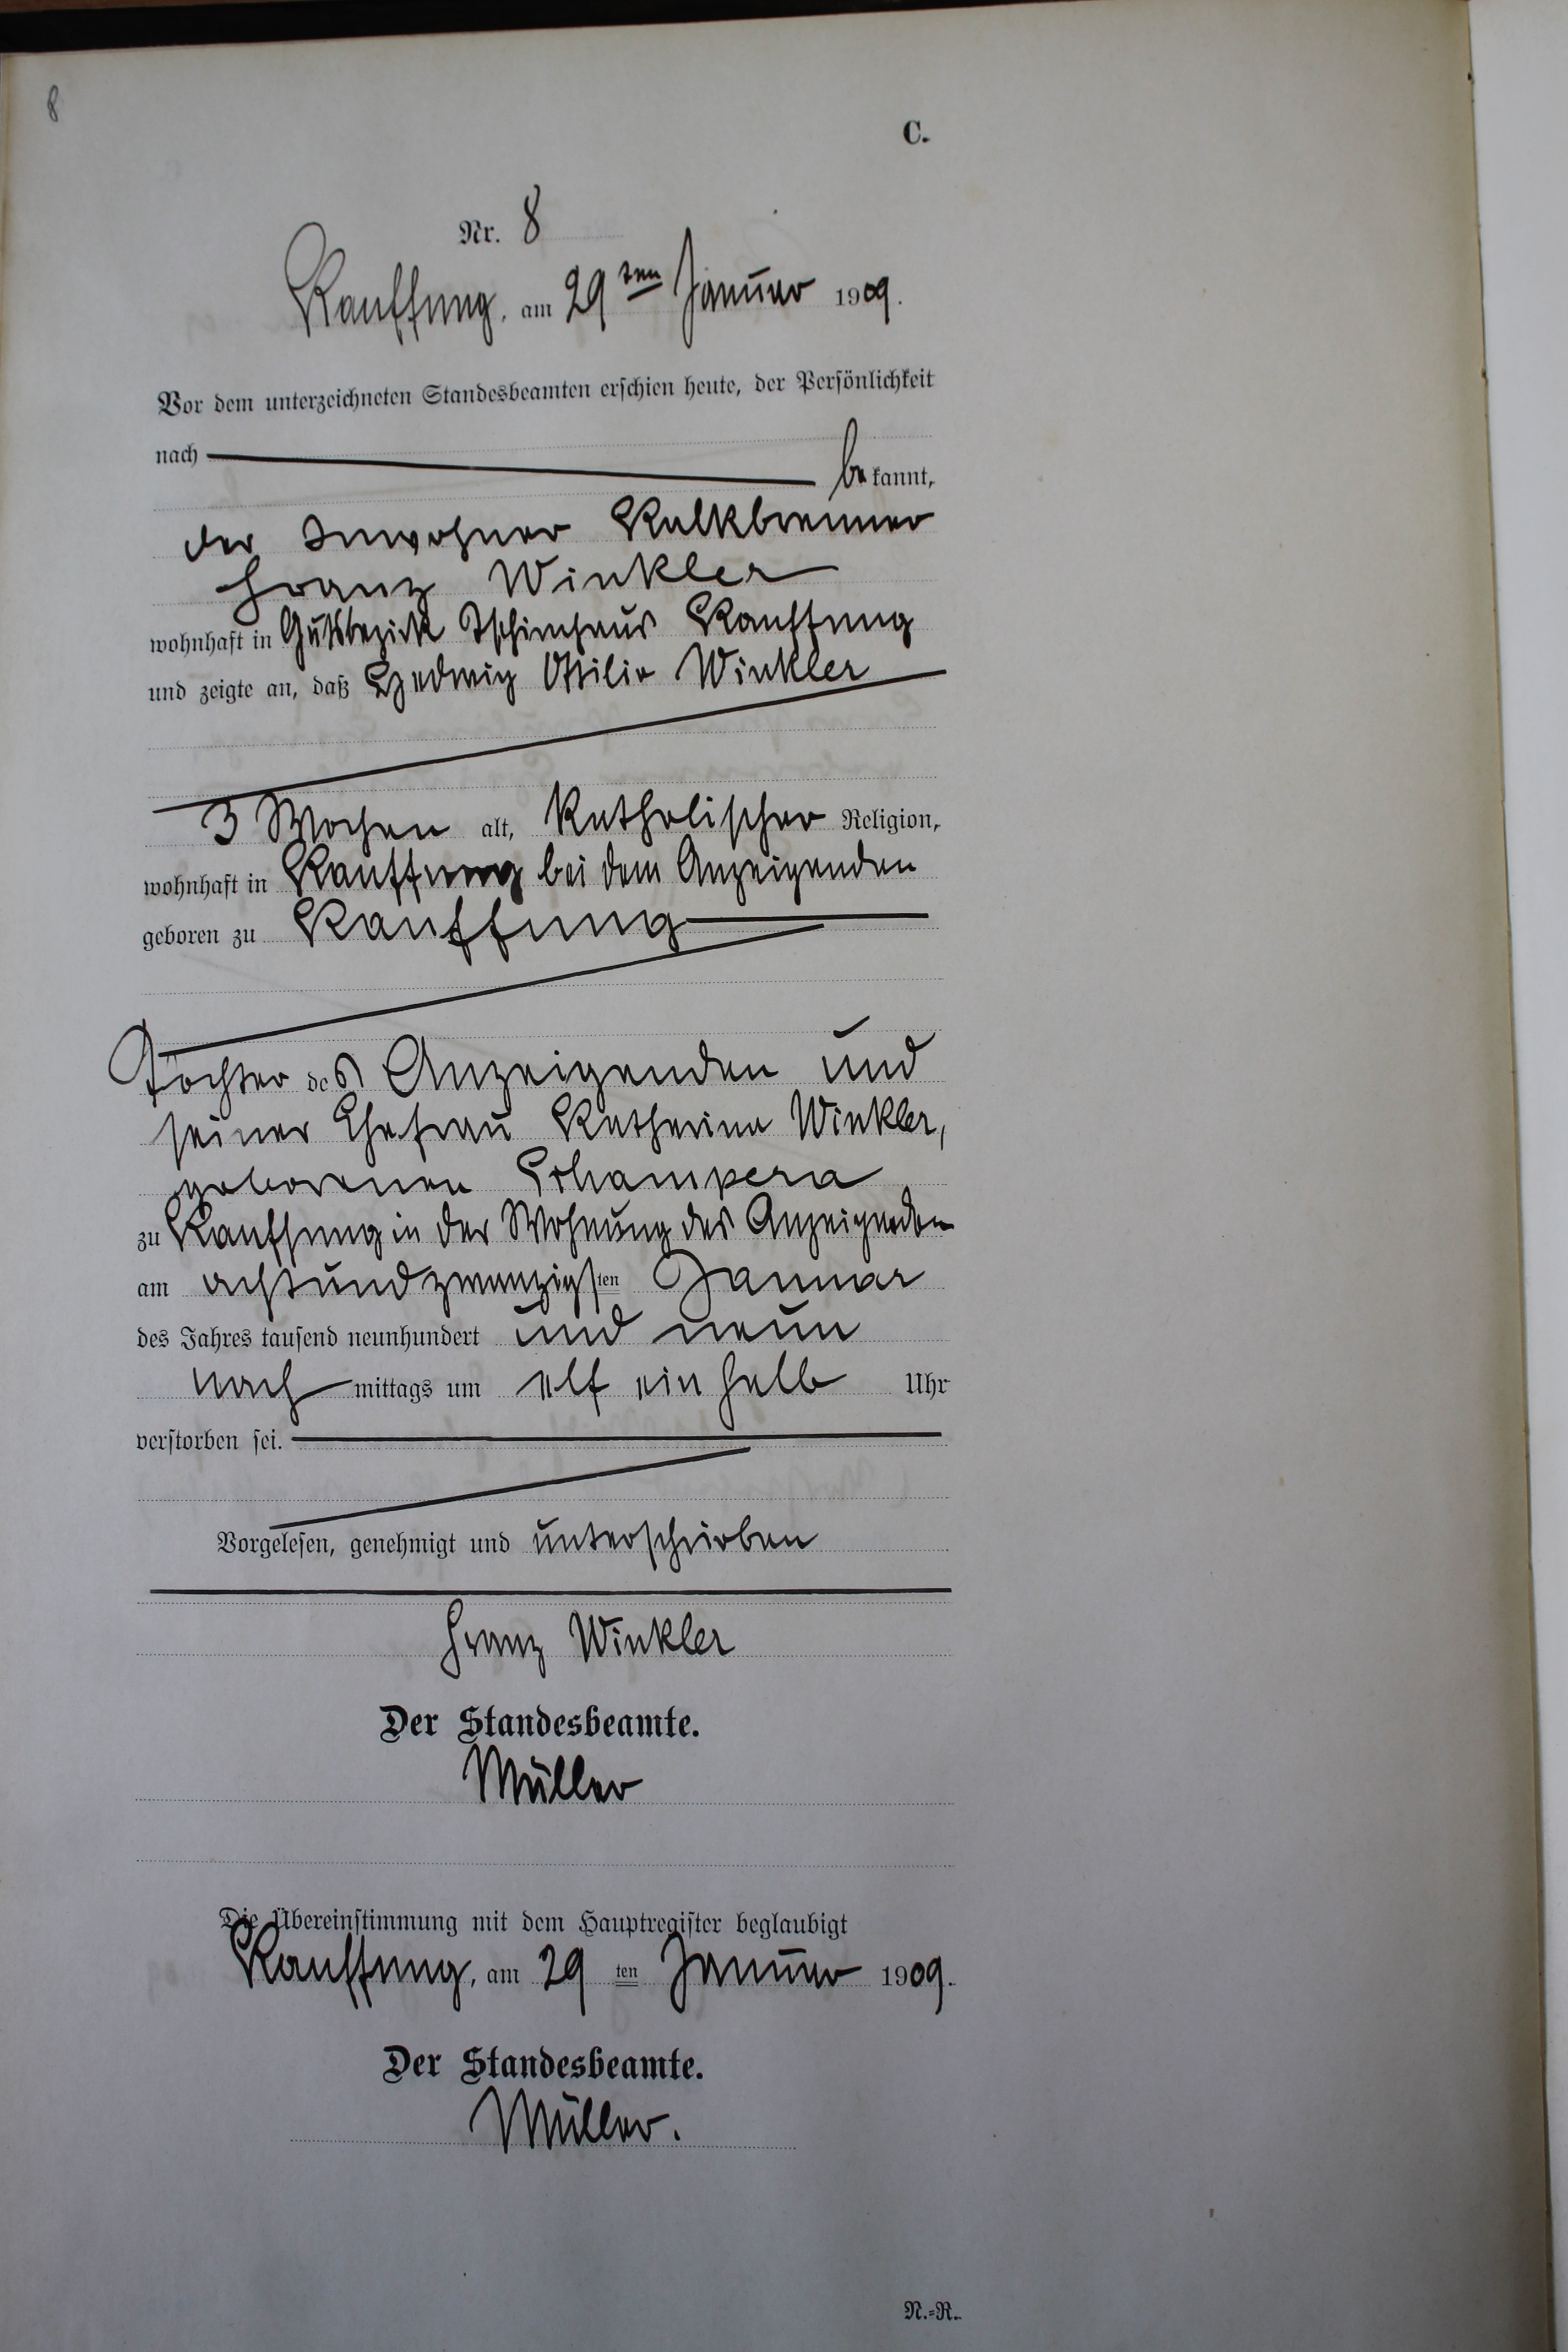 8
C.
Nr. 8
Kauffung, am 29ten Januar 1909.
Vor dem unterzeichneten Standesbeamten erschien heute, der Persönlichkeit
nach bekannt,
der Inwohner Kalkbrenner
Franz Winkler
wohnhaft in Gutsbezirk Tschirnhaus Kauffung
und zeigte an, daß Hedwig Ottilie Winkler
3 Wochen alt, katholischer Religion,
wohnhaft in Kauffung bei dem Anzeigenden
geboren zu Kauffung
Tochter des Anzeigenden und
seiner Ehefrau Katharina Winkler,
geborenen Schampera
zu Kauffung in der Wohnung des Anzeigenden
am achtundzwanzigsten Januar
des Jahres tausend neunhundert und neun
nach mittags um elf ein halb Uhr
verstorben sei.
Vorgelesen, genehmigt und unterschrieben
Franz Winkler
Der Standesbeamte.
Müller
Die Übereinstimmung mit dem Hauptregister beglaubigt
Kauffung, am 29ten Januar 1909.
Der Standesbeamte.
Müller.
N.-R.